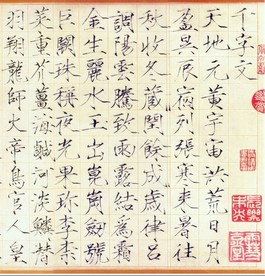 千字文
天地元黃宇宙洪荒日月
盈昃辰宿列張寒來暑往
秋收冬藏閏餘成歲律呂
調陽雲騰致雨露結為霜
金生麗水玉出崑崗劍號
巨闕珠稱夜光果珍李柰
菜重芥薑海鹹河淡鱗潛
羽翔龍師火帝鳥官人皇